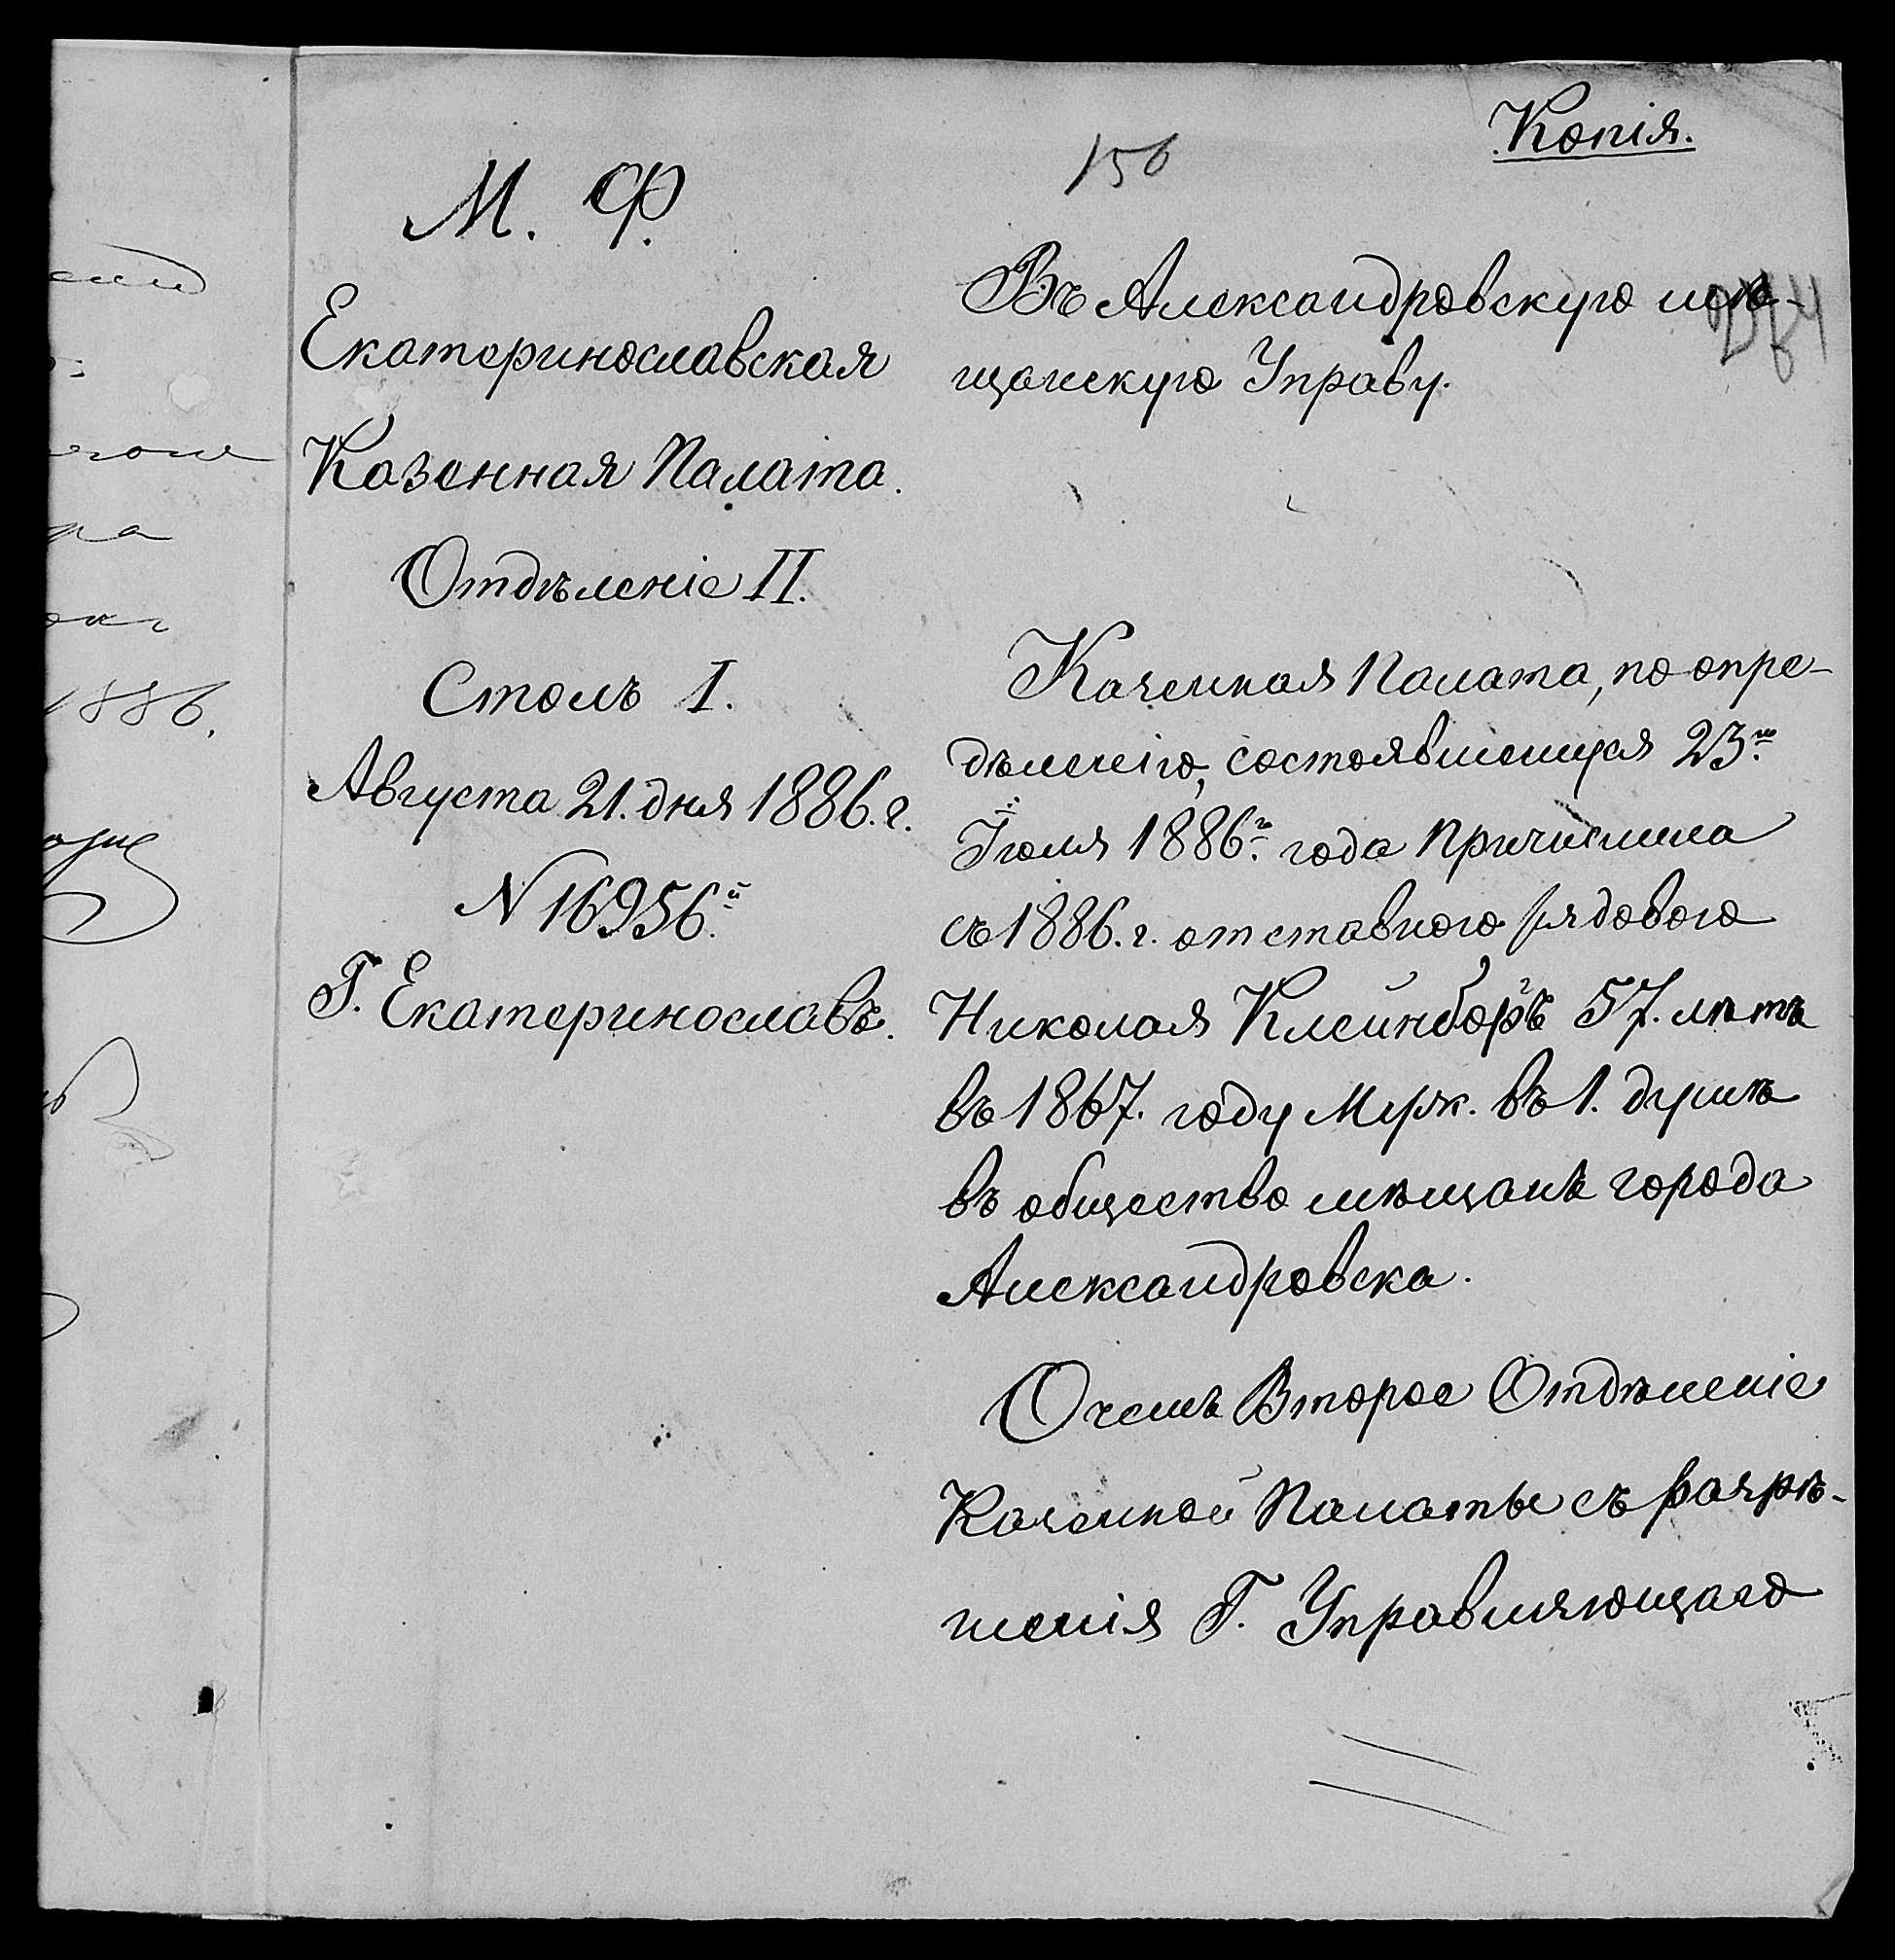 Копія.
156
М. Ф.
Екатеринославская
Казенная Палата.
Отдѣленіе II.
Столъ I.
Августа 21. дня 1886. г.
N 16956.й
Г. Екатеринославъ.
Въ Александровскую мѣ-
щанскую Управу.
Казенная Палата, по опре-
дѣленію, состоявшемуся 23го
Іюля 1886го года причислила
съ 1886. г. отставного рядового
Николая Клейнборгъ 57. лѣтъ
въ 1867. году Мерк. въ 1. душѣ
въ общество мѣщанъ города
Александровска.
О чемъ Второе Отдѣленіе
Казенной Палаты съ разрѣ-
шенія Г. Управляющаго
1886.